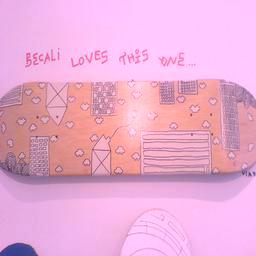 BECALI LOVES THIS ONE...